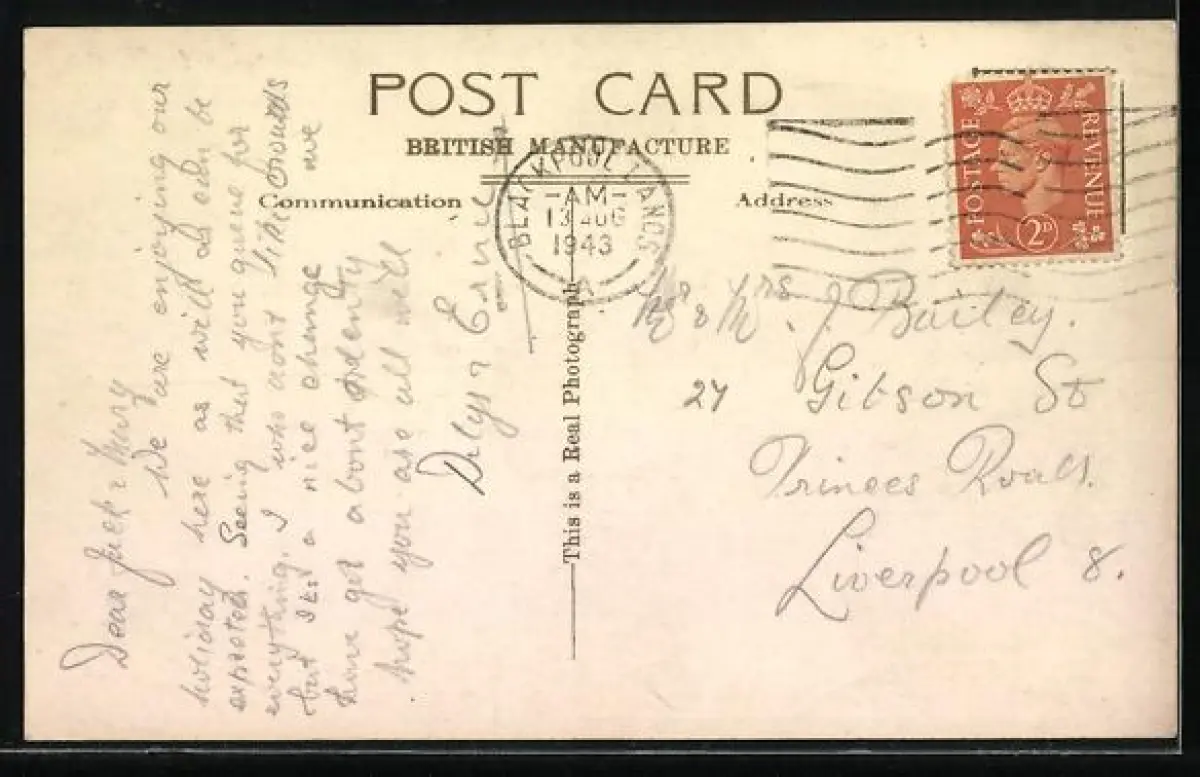 POST CARD
BRITISH MANUFACTURE
Communication
Address
BLACKPOOL LANCS
AM
13 AUG
1943
A
POSTAGE
REVENUE
2D
This is a Real Photograph
Dear Jack & Mary
We are enjoying our
holiday here as well as can be
expected. Seeing that you queue for
everything. I who dont like crowds
but its a nice change we
have got about plenty
hope you are all well
Dilys & Ernie
Mr & Mrs. J Bailey.
27 Gibson St
Princes Road.
Liverpool 8.